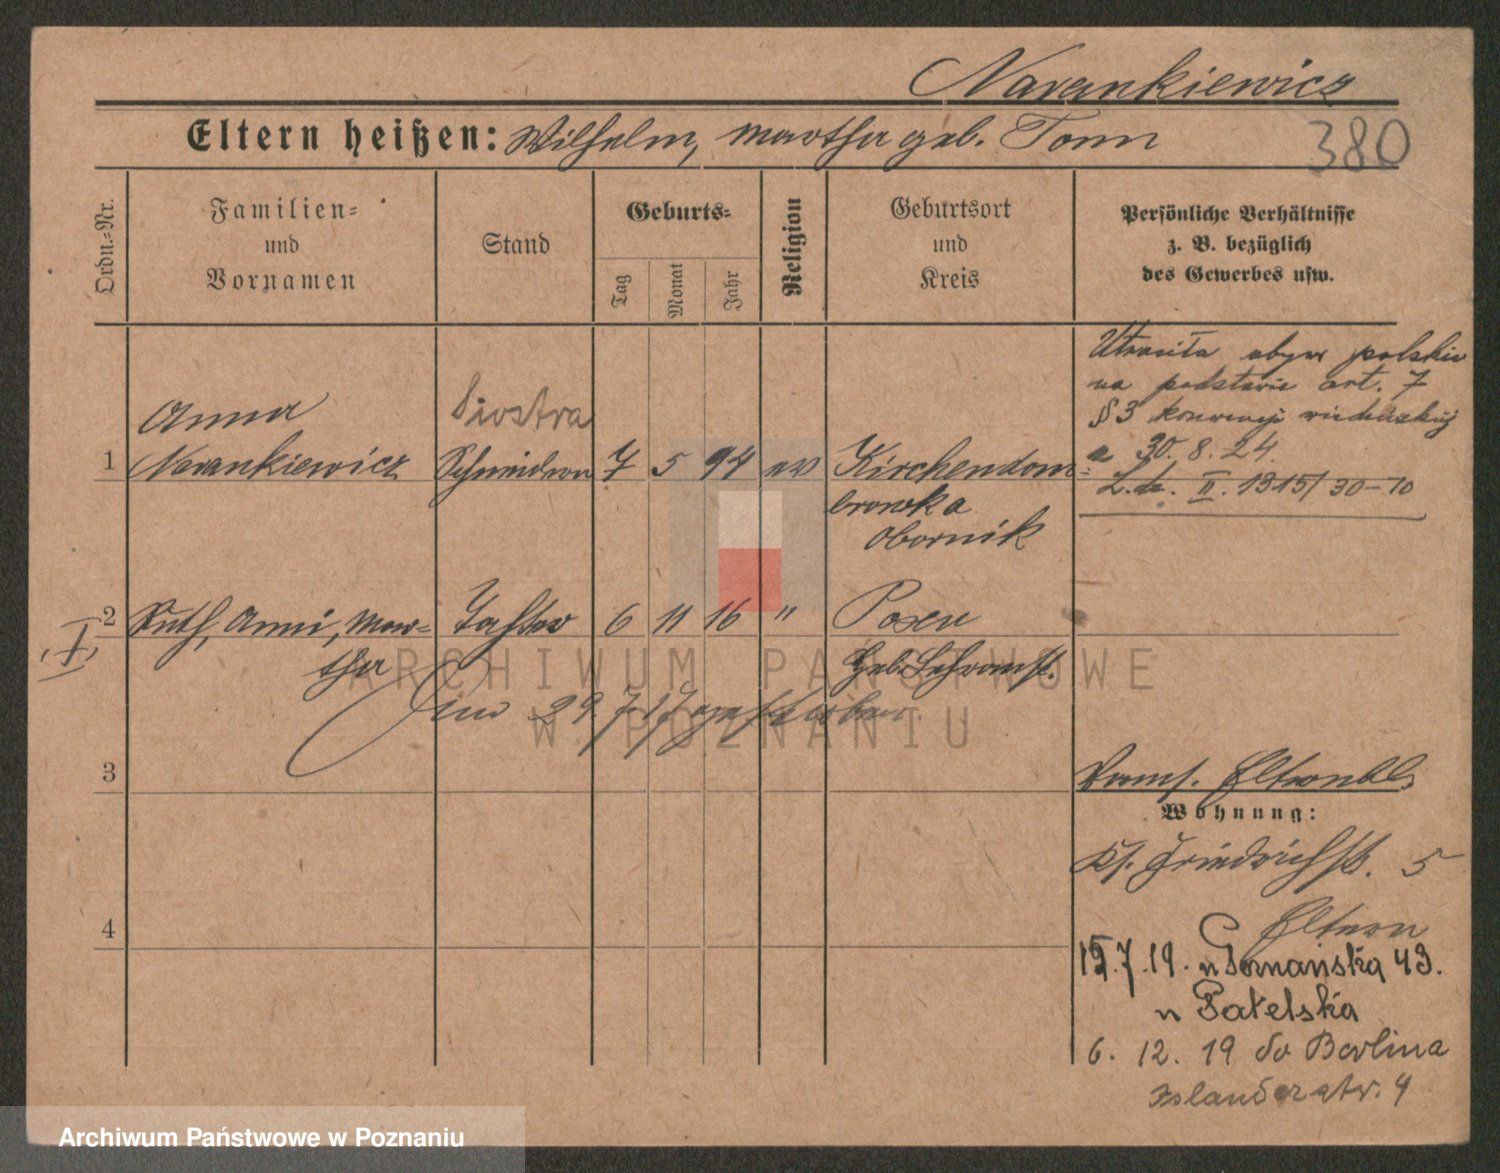 Narankiewicz
Eltern heißen: Wilhelm, Martha geb. Tonn
380
Ordn.-Nr.
Familien-
und
Vornamen
Stand
Geburts-
Tag
Monat
Jahr
Religion
Geburtsort
und
Kreis
Persönliche Verhältnisse
z. B. bezüglich
des Gewerbes usw.
Utraciła obyw polskie
na podstawie art. 7
§ 3 konwencji wiedeńskiej
30. 8. 24.
II. 1315/30-10
Anna
Siostra
1 Narankiewicz Schneiderin 7 5 94 ev Kirchendom-
browka
Obornik
2 Ruth, Anni, Mar- Tochter 6 11 16 " Posen
I
tha
Geb.
am 29.7.17 gestorben
3
Wohnung:
Friedrichstr. 5
4
Eltern
15.7.19. 43.
6. 12. 19 do Berlina
Islanderstr. 4
ARCHIWUM PAŃSTWOWE
W POZNANIU
Archiwum Państwowe w Poznaniu